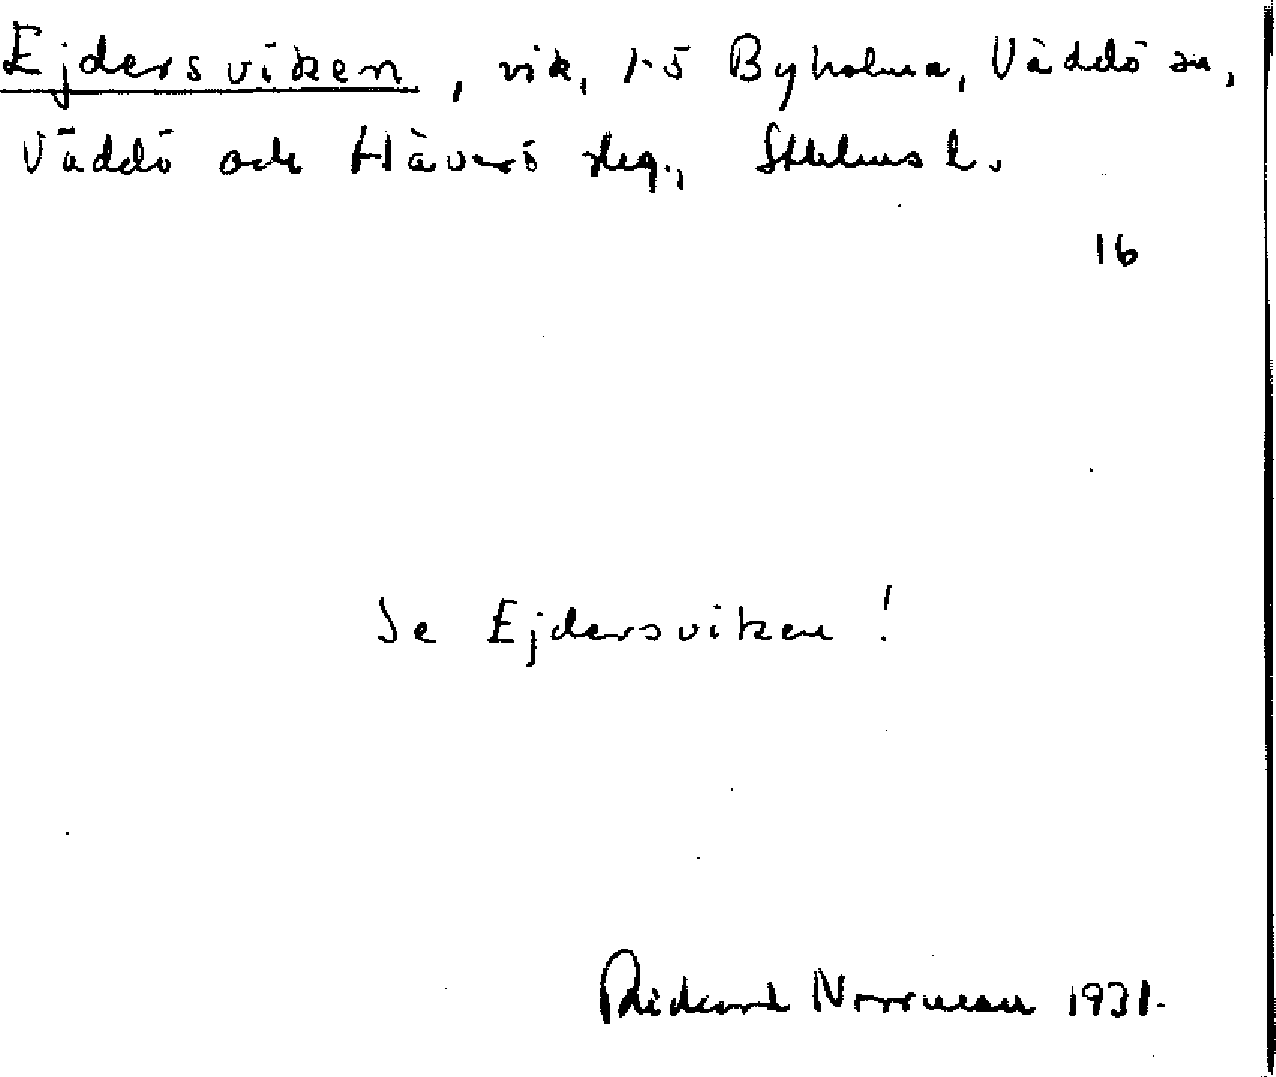 Ejdersviken, vik, 1-5 Byholma, Väddö sn,
Väddö och Häverö skg., Sthlms l.
16
Se Ejdersviken!
Rickard Norrman 1931.